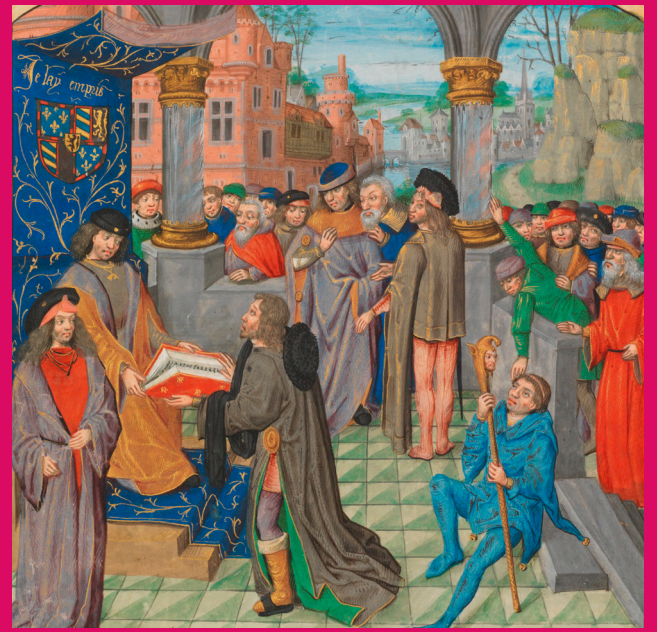 Je lay empris